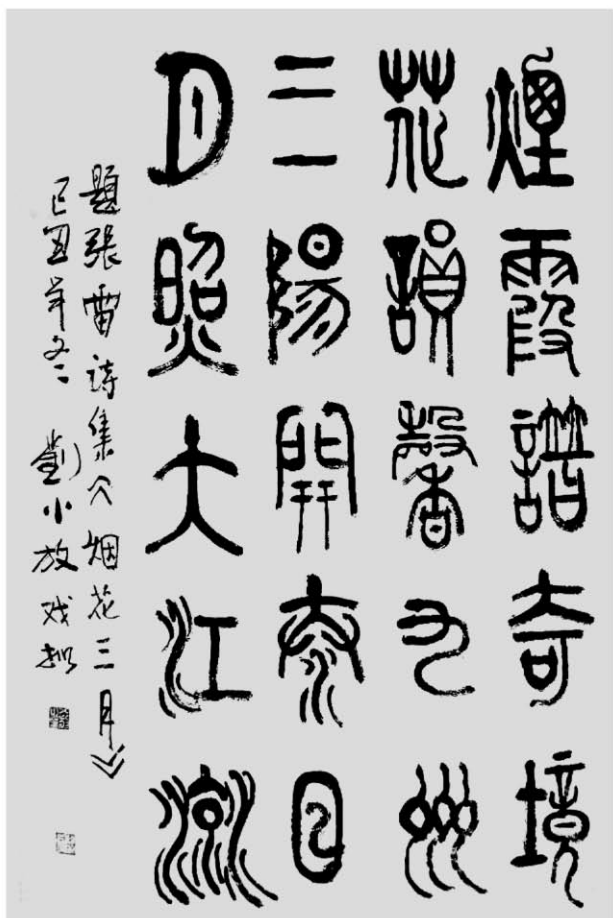 煙霞譜奇境
花韻馨九州
三陽開泰日
月照大江流
題張雷诗集《烟花三月》
己丑年冬 劉小放戏拟